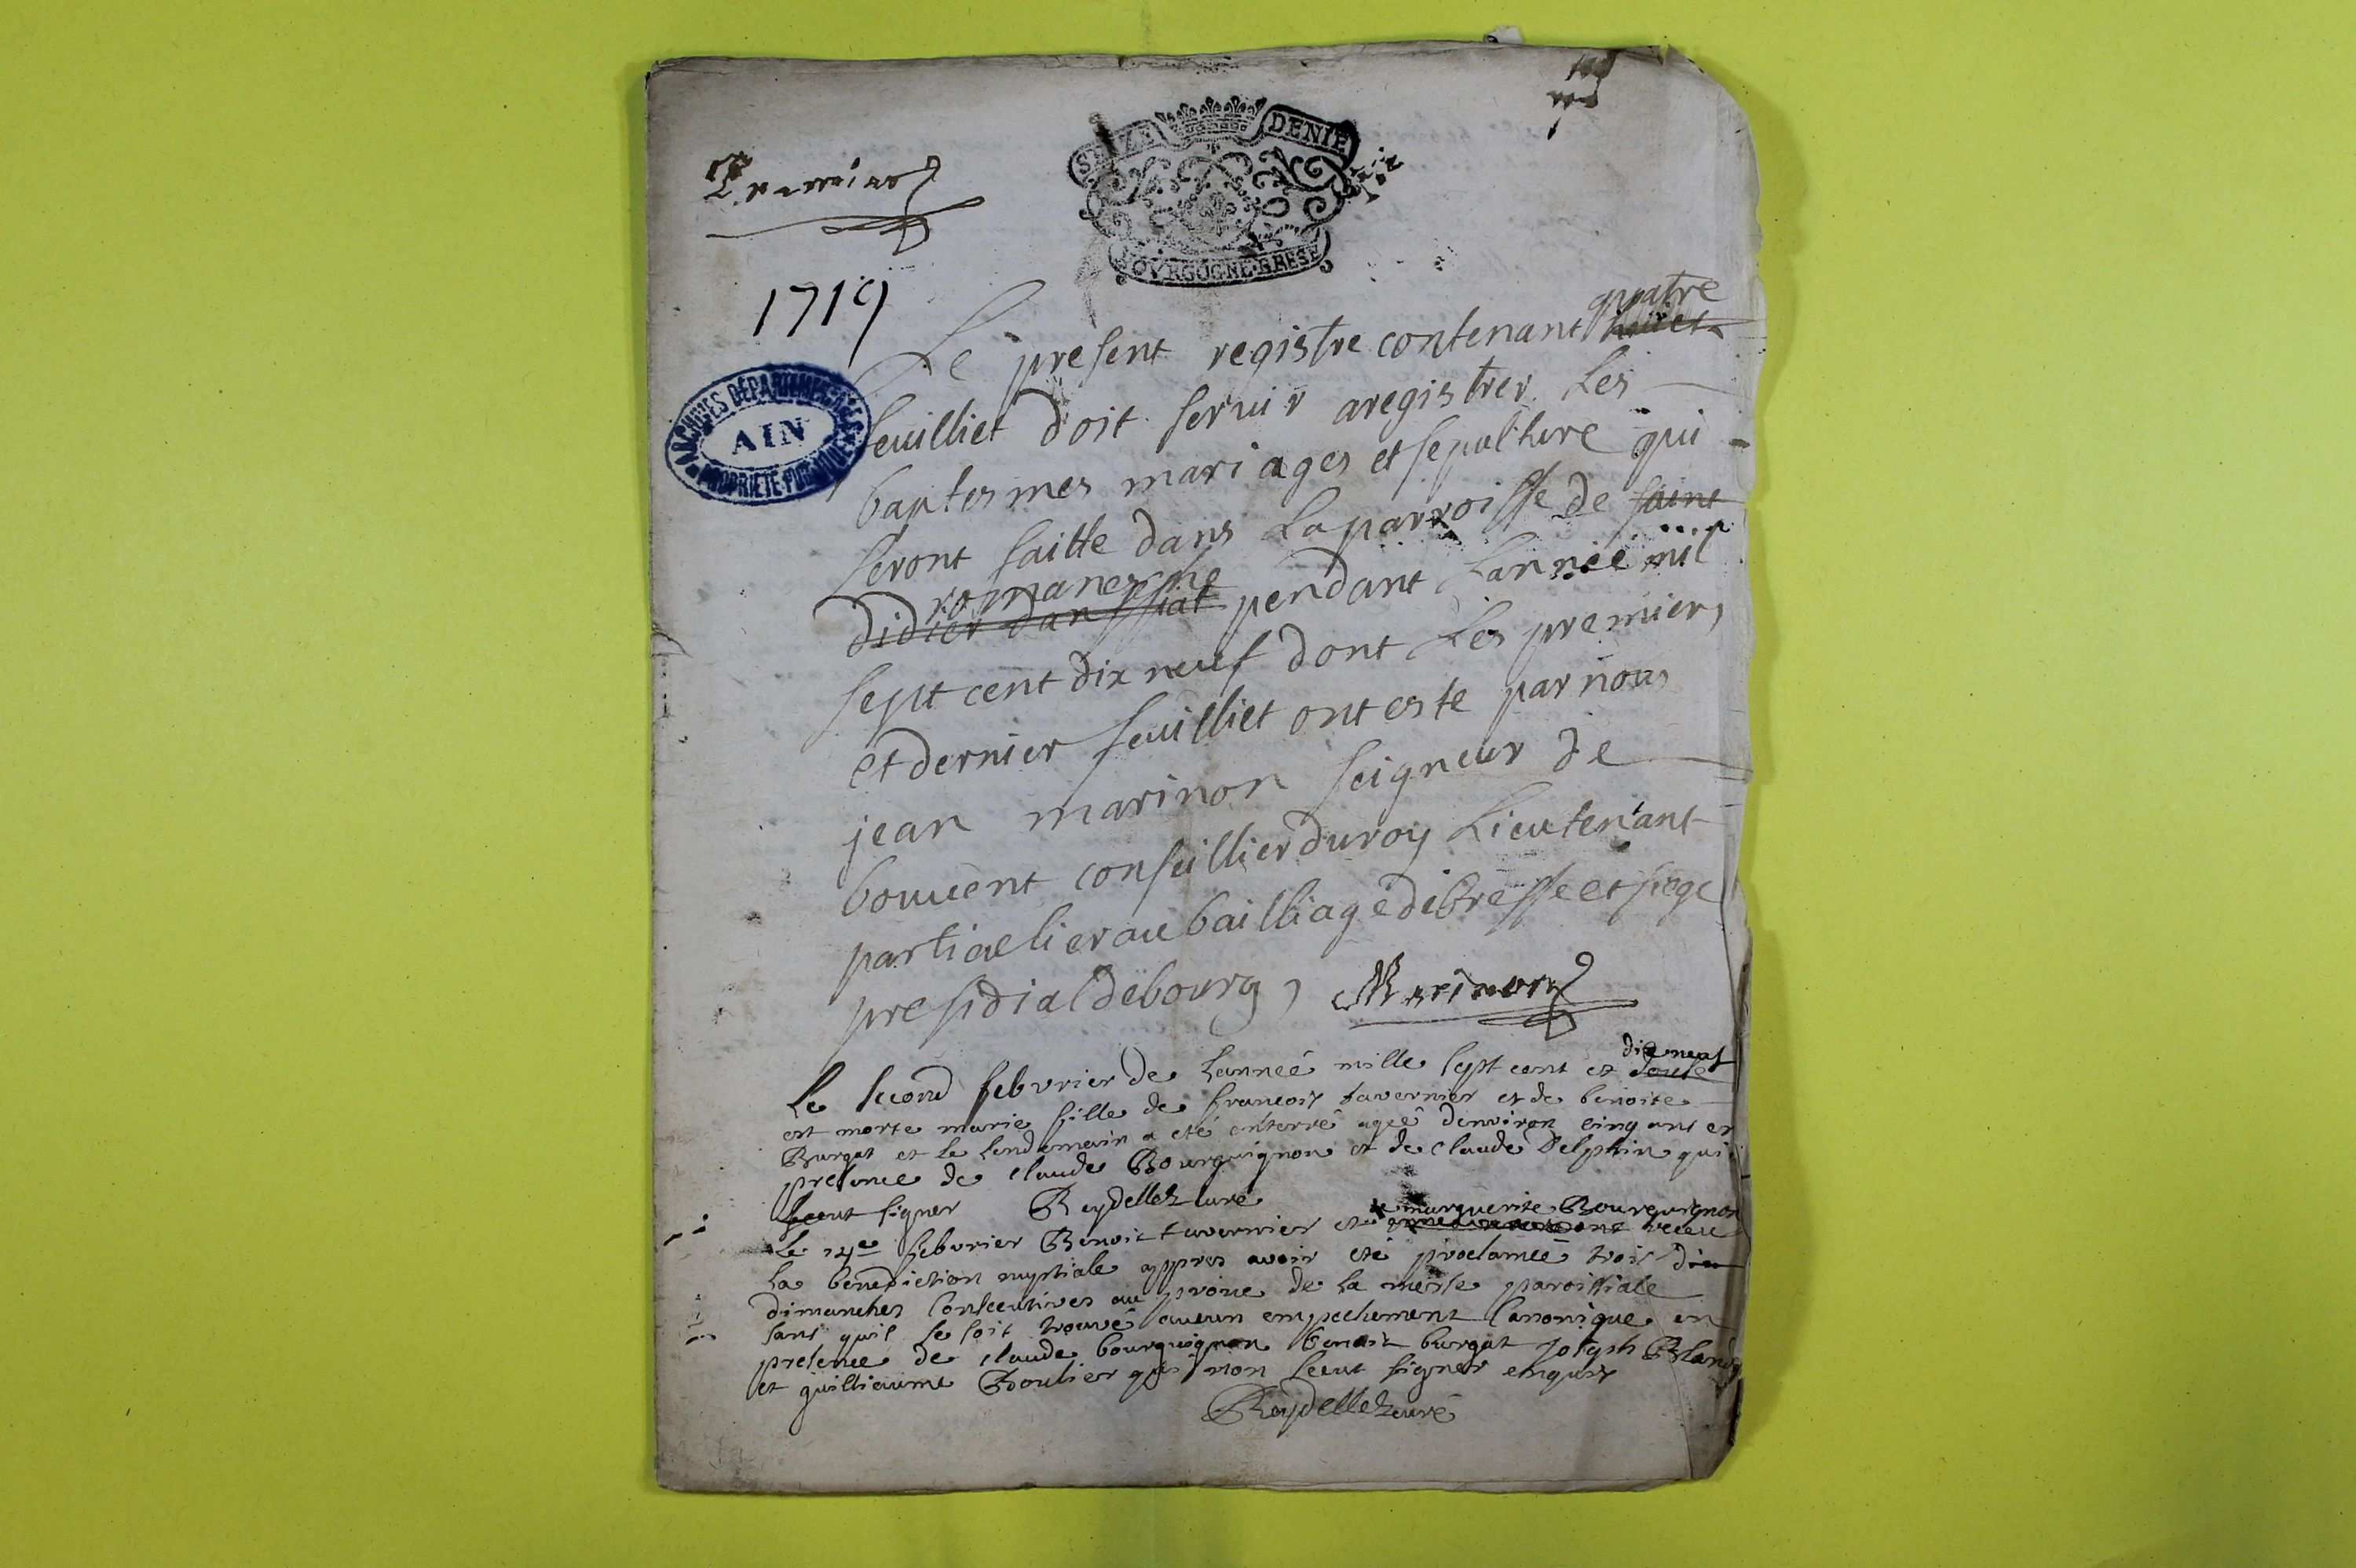 SEIZE DENIE
BOVRGOGNE·BRESE
1719
ARCHIVES DÉPARTEMENTALES
AIN
PROPRIÉTÉ PUBLIQUE
quatre
Le present registre contenant huict
feuilliet doit servir aregistrer Les
baptesmes mariages et sepulture qui
seront faitte dans La parroisse de saint
romanesche
didier daussiat pendant Lannée mil
sept cent dix neuf dont Les premier,
et dernier feuilliet ont este par nous
jean marinon seigneur de
bouuent conseillier du roy Lieutenant
particulier au bailliage de bresse et siege
presidial de bourg, Marinon
dix neuf
Le second febvrier de Lanneé mille sept cent et douse
est morte marie fille de francois tavernier et de benoite
Burgat et le lendemain a eté enterré ageé denviron cinq ans en
presence de claude Bourguignon et de claude Delphin qui
sceut signer Reydellet curé
marguerite Bourguignon
Le febvrier Benoit tavernier et ont receu
La benediction nuptiale appres avoir eté proclameé trois
dimanches Consecutives au prone de la messe paroissiale
sans quil se soit trouvé aucun empechement Canonique en
presence de claude bourguignon benoit burgat joseph Blanc
et guillieaume Boulier qui non sceut signer enquis
Reydellet curé